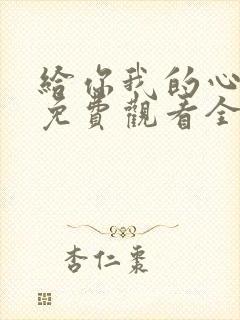 給你我的心
免費觀看全
杏仁棗